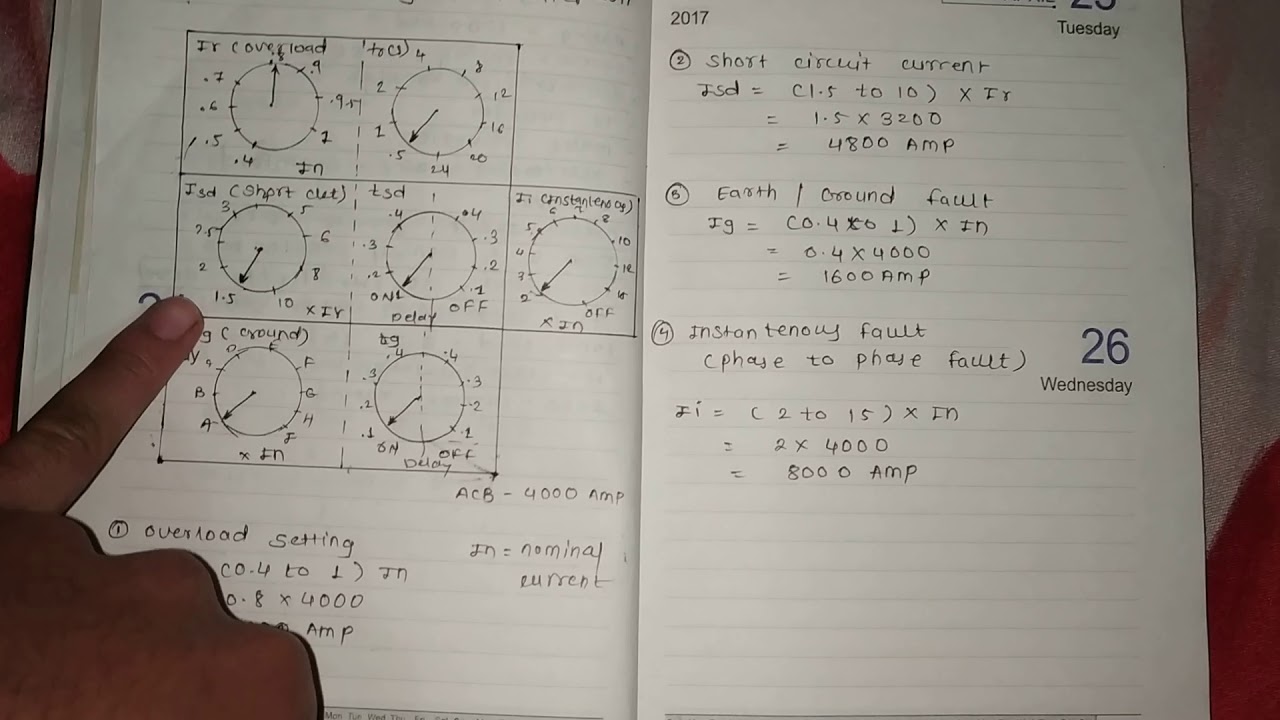 Ir (overload
to(s)
.4 .5 .6 .7 .8 .9 .95 1
In
.5 1 2 4 8 12 16 20 24
Isd (Short ckt)
tsd
Ii (Instantenous)
1.5 2 2.5 3 5 6 8 10
x Ir
.1 .2 .3 .4 .4 .3 .2 .1
ON OFF
Delay
2 3 4 5 6 7 8 10 12 15 OFF
x In
(Ground)
tg
A B E F G H J
x In
.1 .2 .3 .4 .4 .3 .2 .1
ON OFF
Delay
ACB - 4000 AMP
① overload Setting
(0.4 to 1) In
0.8 x 4000
AMP
In = nominal
current
2017
Tuesday
② Short circuit current
Isd = (1.5 to 10) x Ir
= 1.5 x 3200
= 4800 AMP
③ Earth / Ground fault
Ig = (0.4 to 1) x In
= 0.4 x 4000
= 1600 AMP
④ Instantenous fault
(phase to phase fault)
26
Wednesday
Ii = (2 to 15) x In
= 2 x 4000
= 8000 AMP
2017
Mon Tue Wed Thu